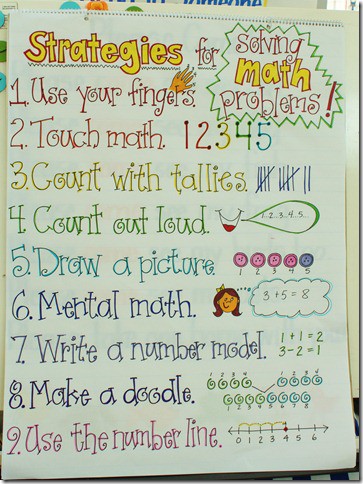 Strategies for solving math problems!
1. Use your fingers.
2. Touch math. 1 2 3 4 5
3. Count with tallies.
4. Count out loud. 1..2..3..4..5..
5. Draw a picture.
1 2 3 4 5
6. Mental math. 3 + 5 = 8
7. Write a number model. 1 + 1 = 2
3 - 2 = 1
8. Make a doodle.
9. Use the number line. 0 1 2 3 4 5 6